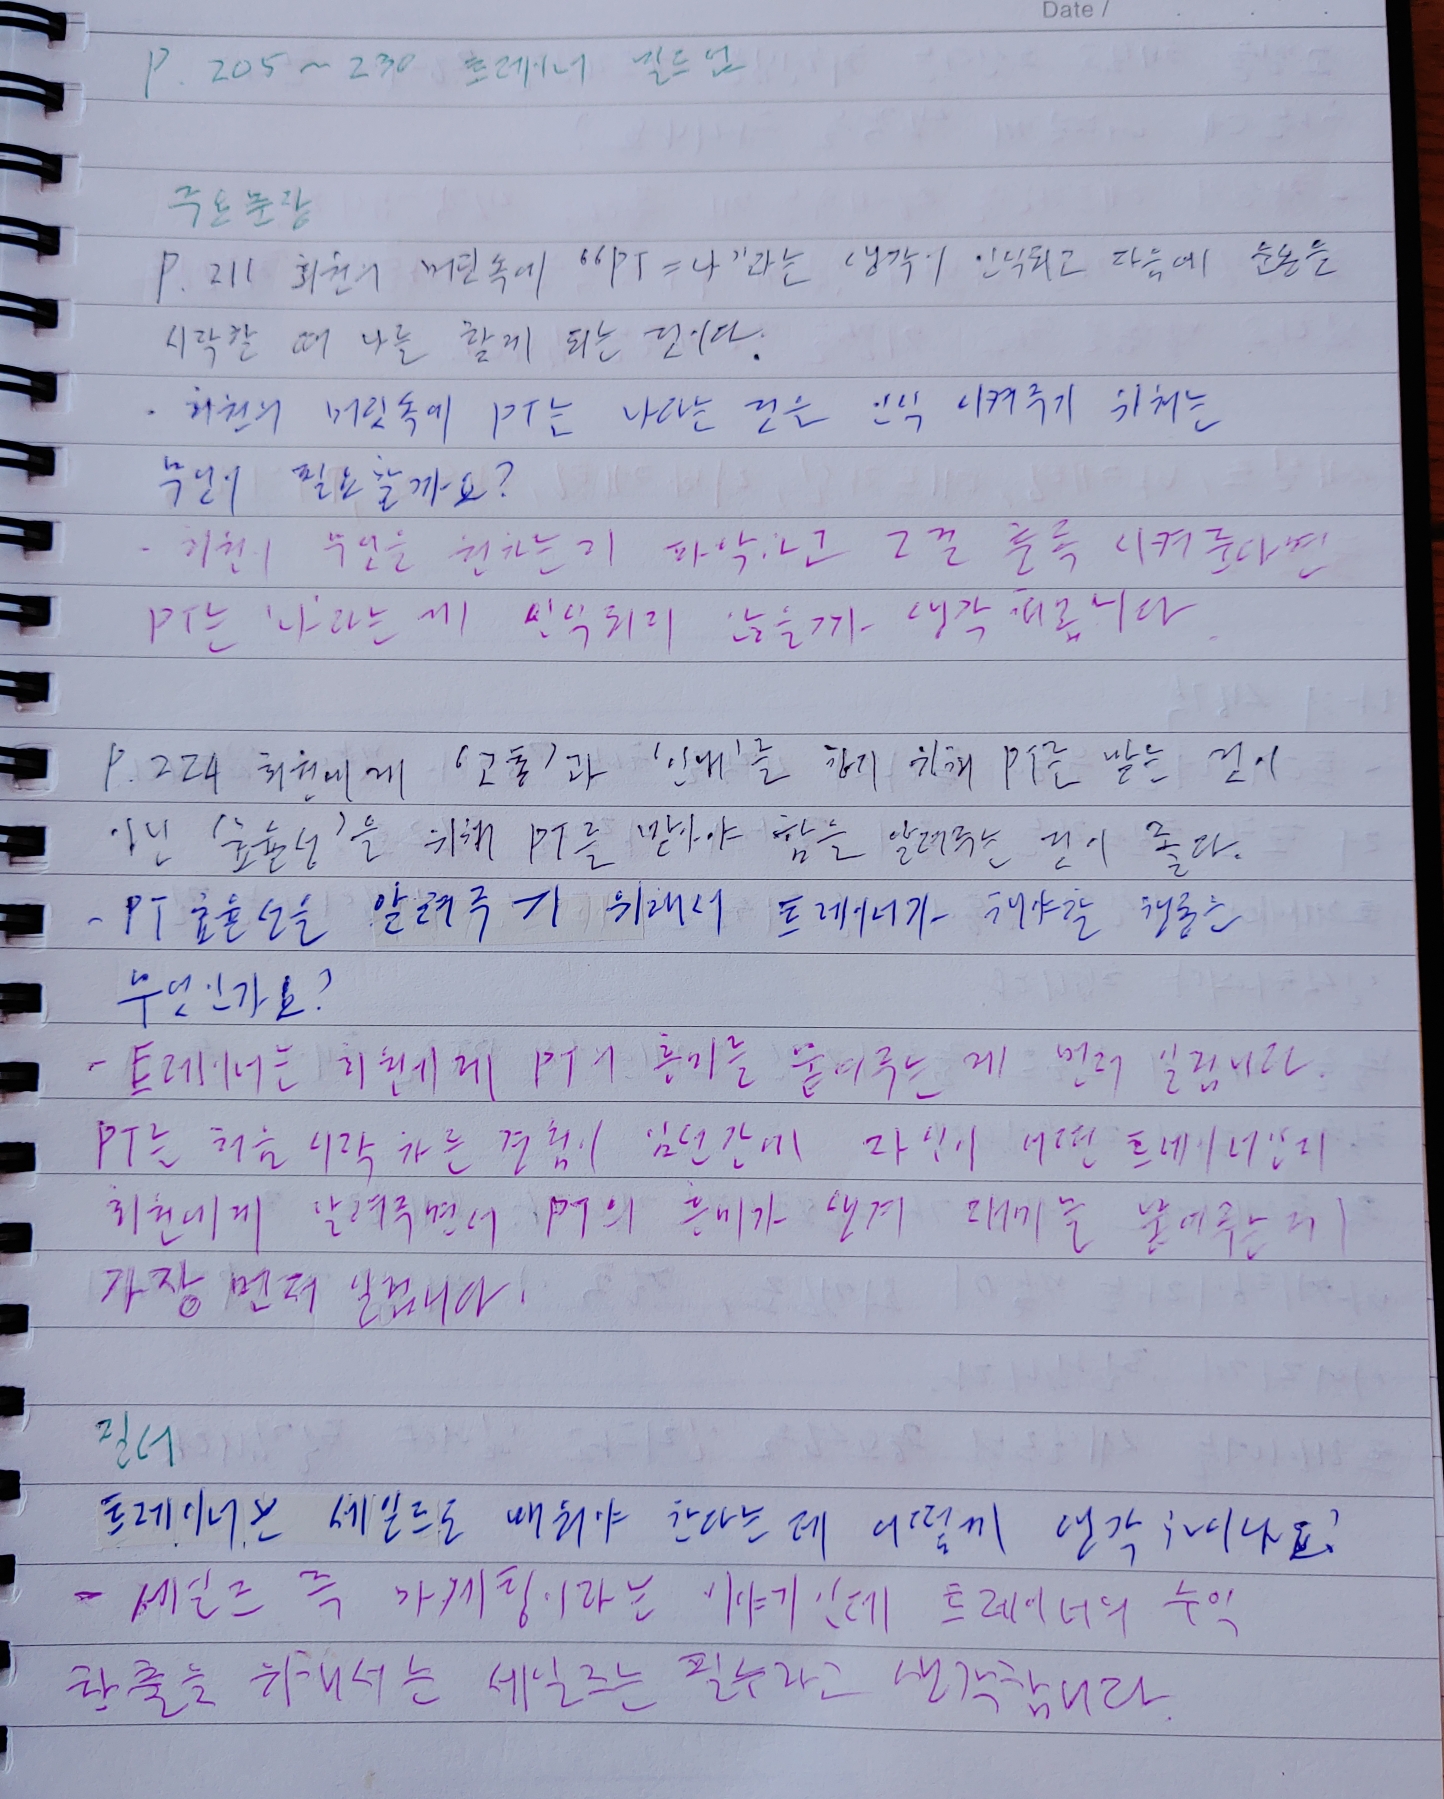 Date /
P. 205 ~ 230 트레이너 빌드업
주요문장
P. 211 회원의 머릿속에 "PT = 나"라는 생각이 인식되고 다음에 운동을
시작할 때 나를 찾게 되는 것이다.
· 회원의 머릿속에 PT는 나라는 것을 인식 시켜주기 위해는
무엇이 필요할까요?
- 회원이 무엇을 원하는지 파악하고 그걸 충족 시켜준다면
PT는 '나'라는 게 인식되지 않을까 생각해봅니다.
P. 224 회원에게 '고통'과 '인내'를 하기 위해 PT를 받는 것이
아닌 '효율성'을 위해 PT를 받아야 함을 알려주는 것이 좋다.
- PT 효율성을 알려주기 위해서 트레이너가 해야할 행동은
무엇인가요?
- 트레이너는 회원에게 PT의 흥미를 붙여주는 게 먼저 일겁니다.
PT는 처음 시작하는 경험이 입문간에 자신이 어떤 트레이너인지
회원에게 알려주면서 PT의 흥미가 생겨 재미를 붙여주는게
가장 먼저 일겁니다.
질서
트레이너는 세일즈도 배워야 한다는데 어떻게 생각하시나요?
- 세일즈 즉 마케팅이라는 이야기인데 트레이너의 수익
창출을 위해서는 세일즈는 필수라고 생각합니다.